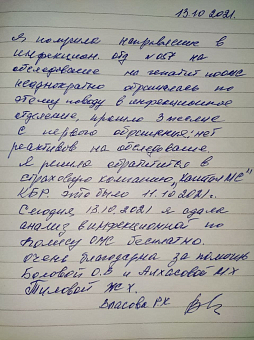 13.10 2021.
Я получила направление в
инфекцион. отд на
обследование на гепатит
неоднократно обращалась по
этому поводу в инфекционное
отделение, прошло 3 месяца
с первого обращения: нет
реактивов на обследование.
Я решила обратится в
страховую компанию "Капитал МС"
КБР. это было 11.10.2021г.
Сегодня 13.10.2021 я сдала
анализ в инфекционной по
полису ОМС бесплатно.
Очень благодарна за помощь
Боловой О.В и Анхасовой МХ
Тиловой Ж Х.
Власова РХ